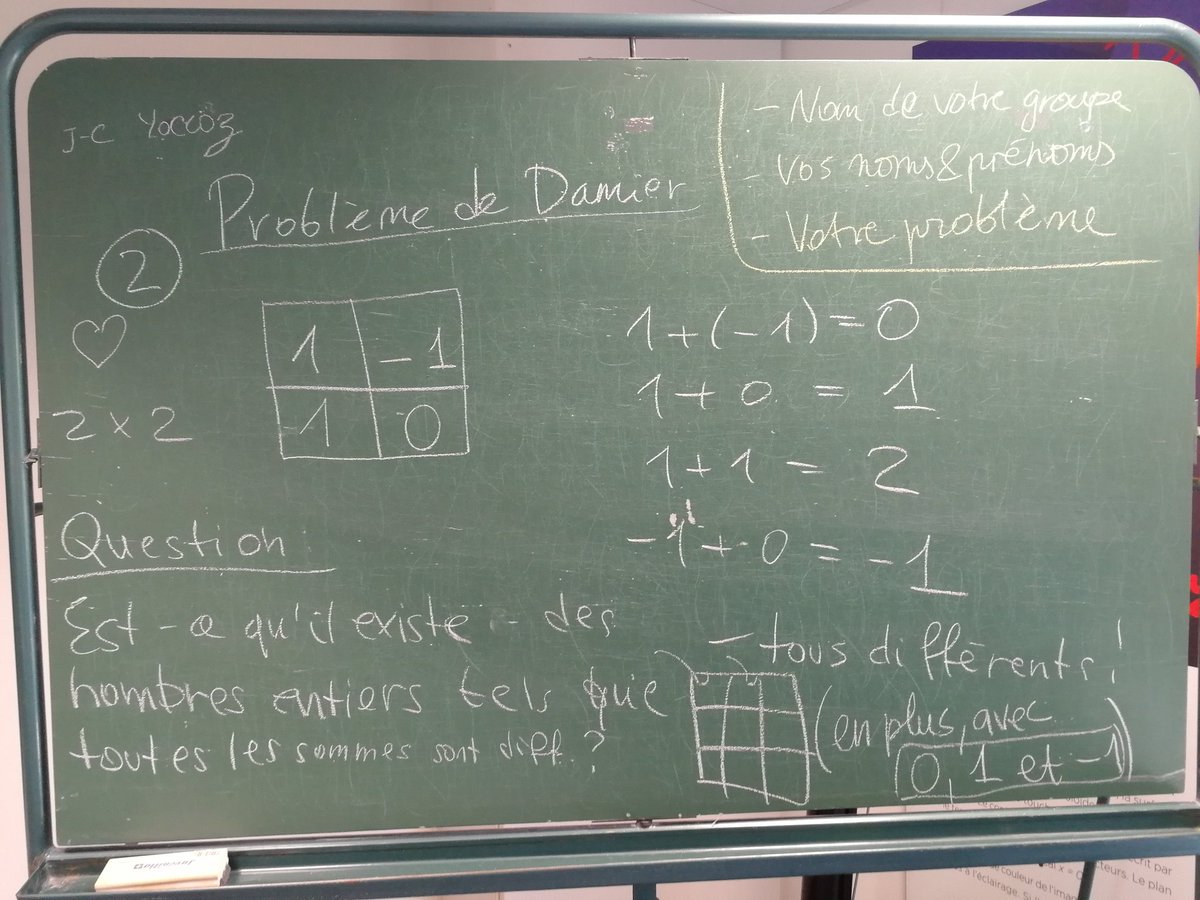 J-C Yoccoz
- Nom de votre groupe
- vos noms & prénoms
- Votre problème
Problème de Damier
2
2 x 2
1 -1
1 0
1 + (-1) = 0
1 + 0 = 1
1 + 1 = 2
-1 + 0 = -1
Question
Est-ce qu'il existe des
nombres entiers tels que
toutes les sommes sont diff.?
- tous différents!
(en plus, avec
0, 1 et -1)